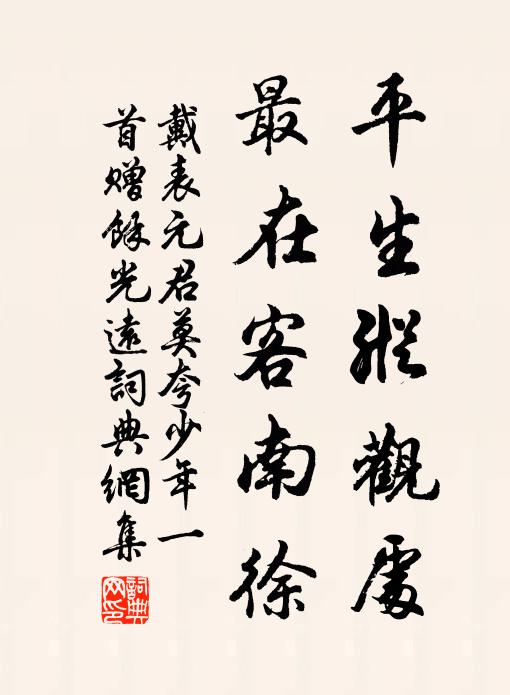 平生縱觀處
最在客南徐
戴表元君莫夸少年一
首贈餘光遠詞典網集
詞典網印